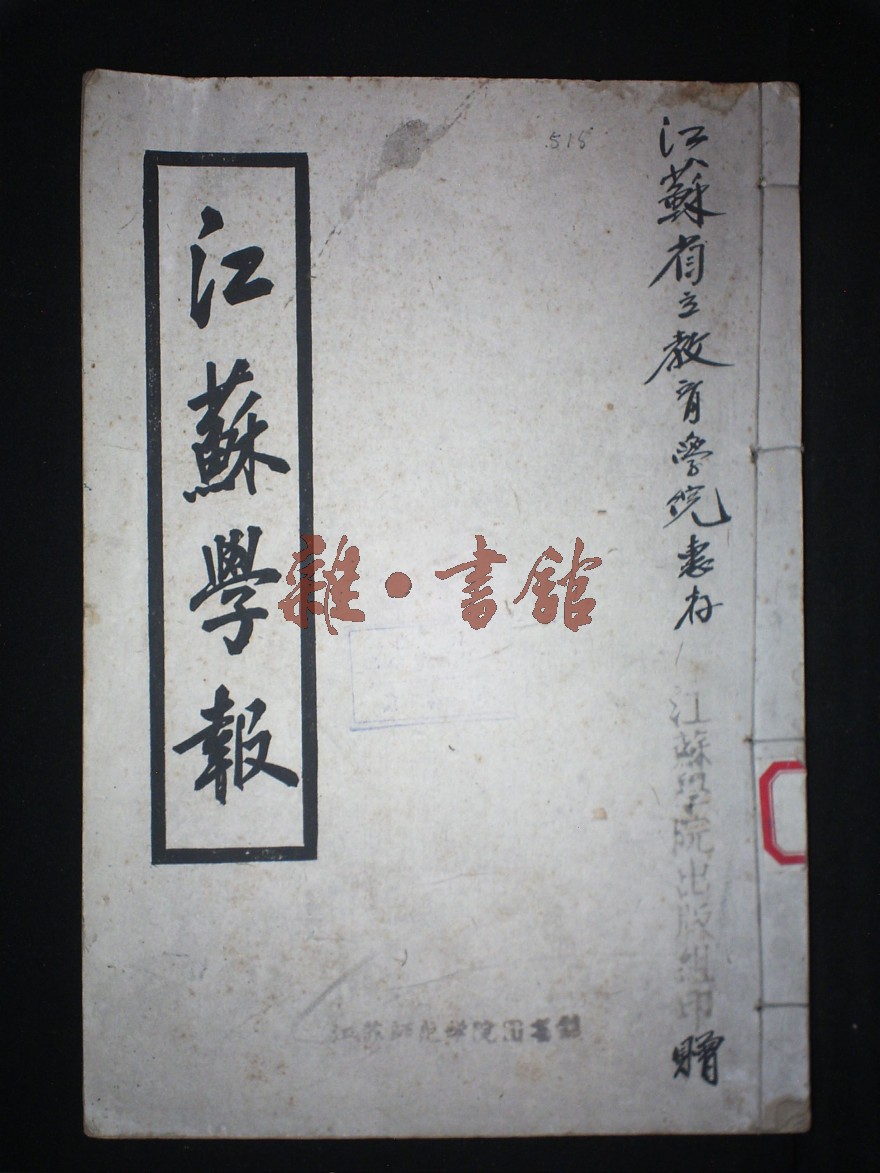 515
江蘇省立教育學院惠存
江蘇學院出版組印贈
江蘇學報
雜·書館
江苏师范学院图书馆